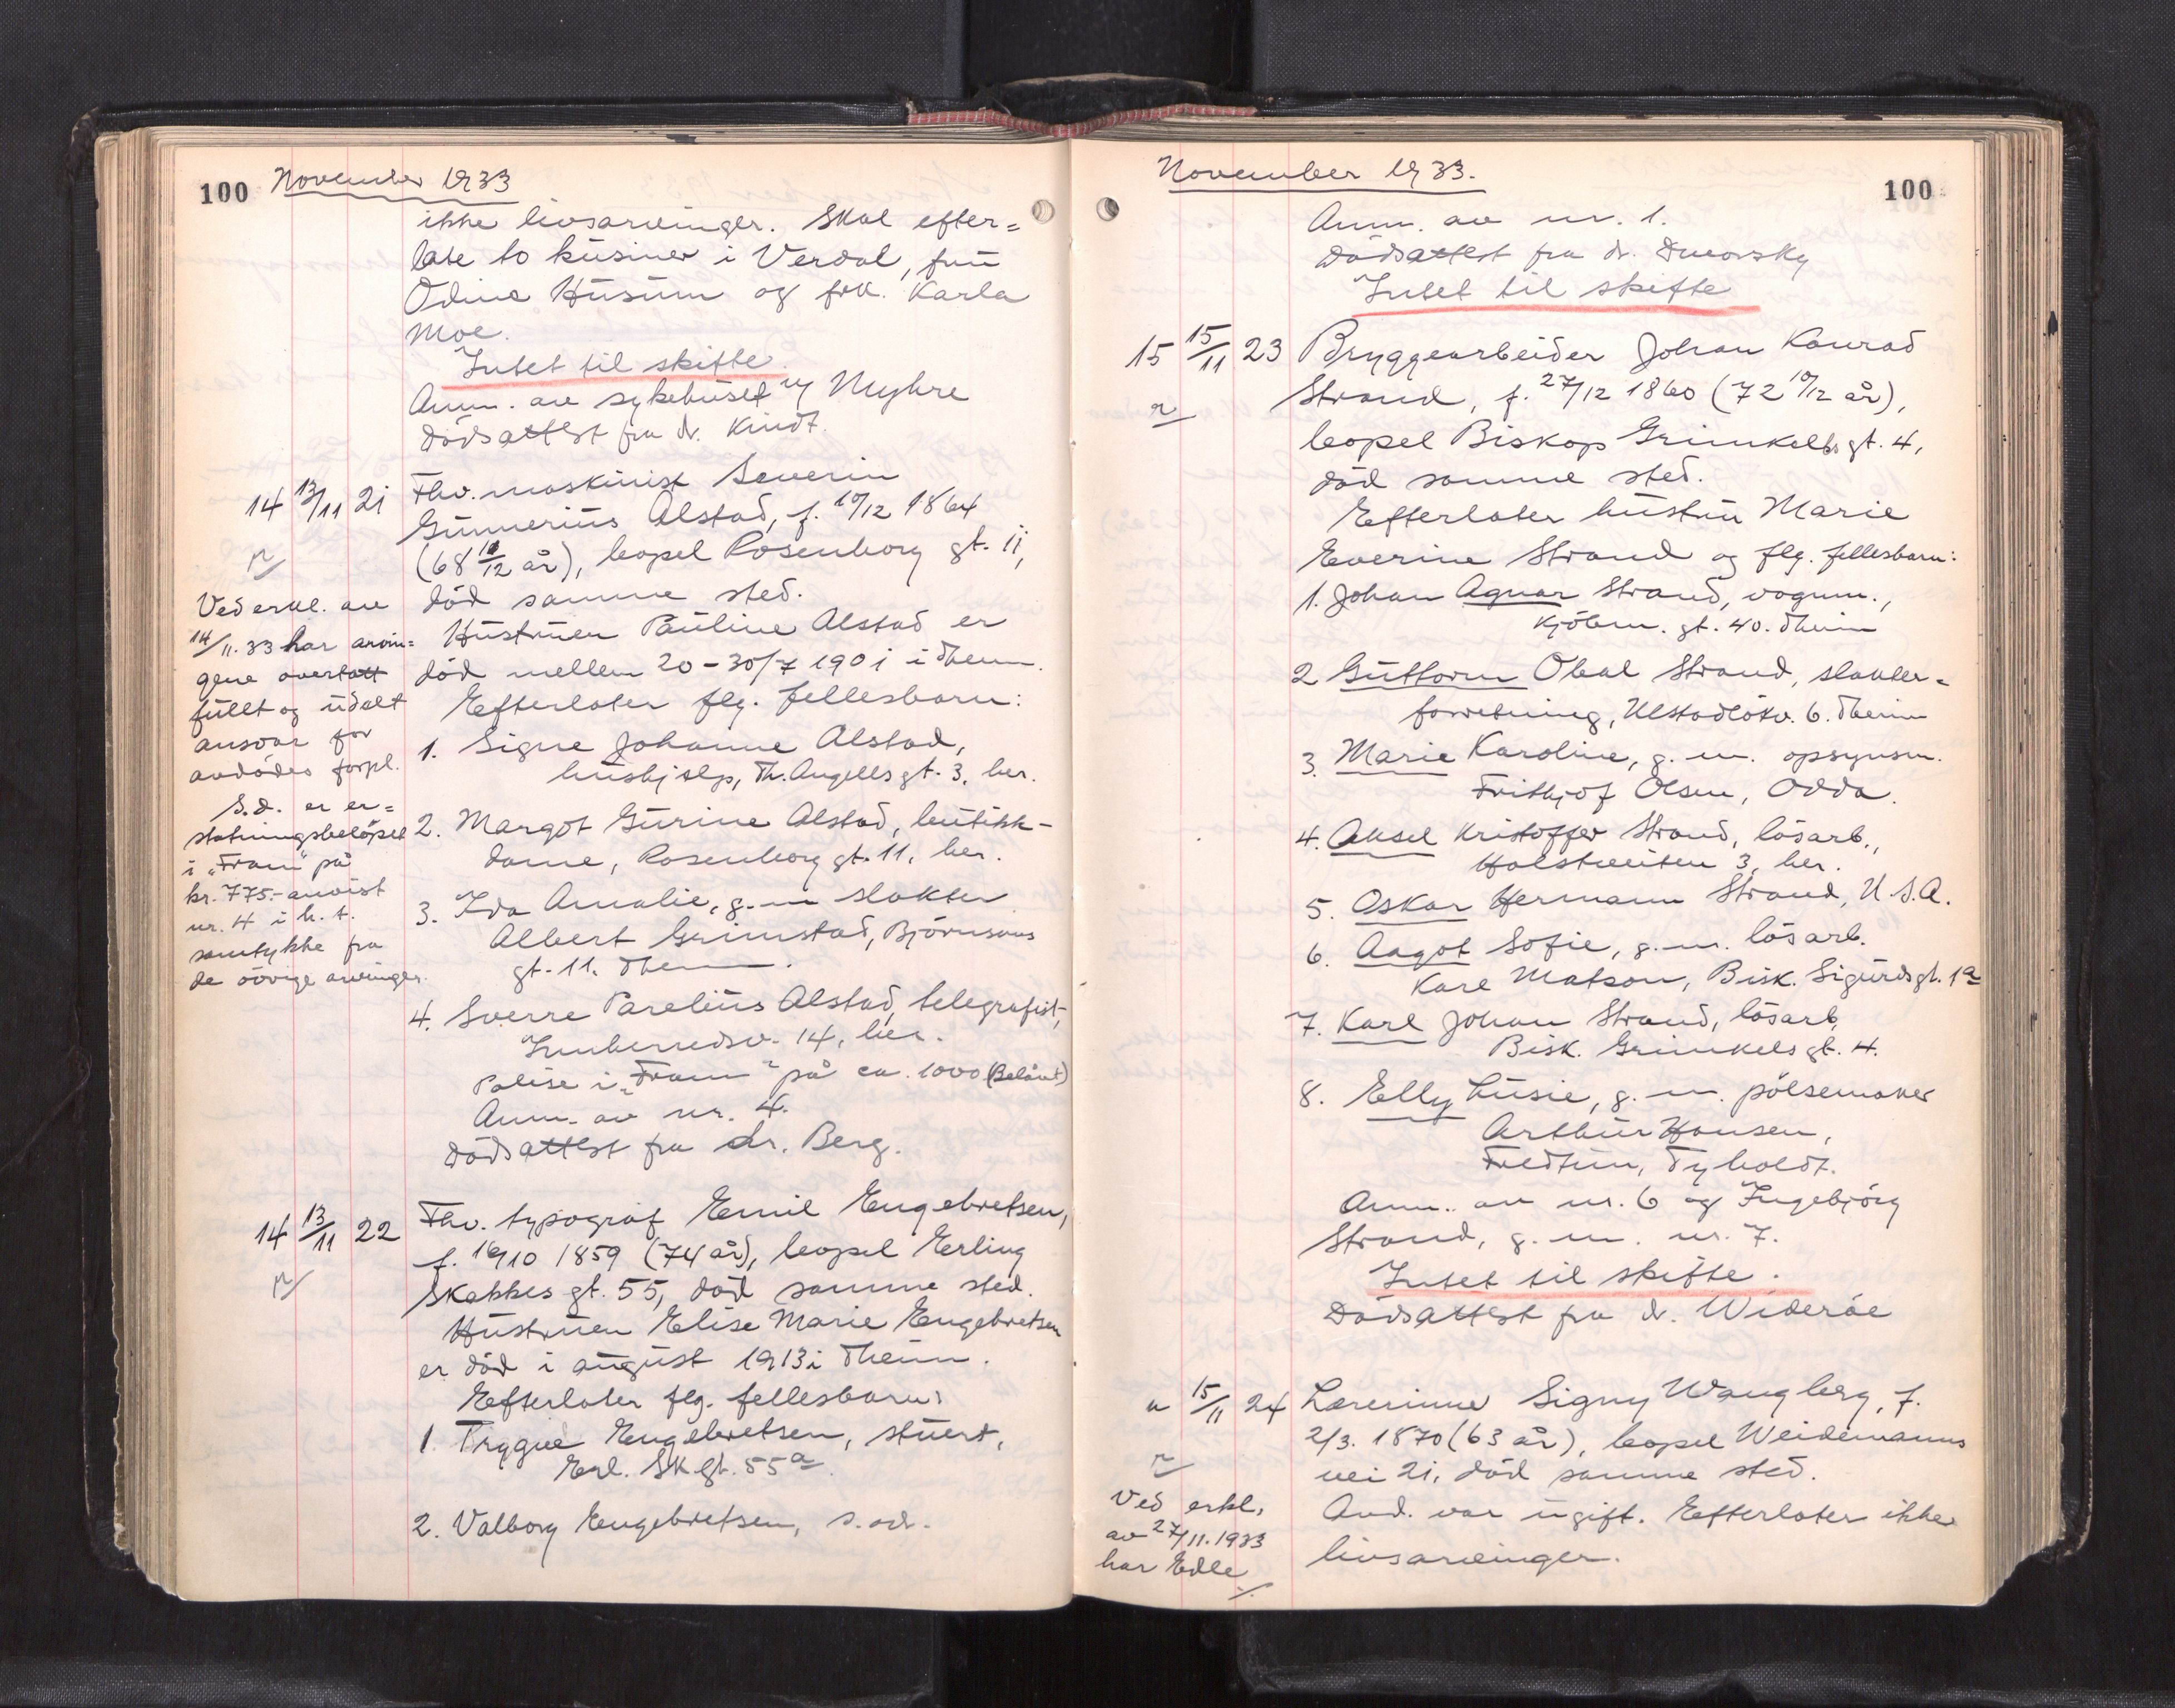 100 November 1933
ikke livsarvinger. Skal efter=
late to kusiner i Verdal, fru
Odine Husum og frk. Karla
Moe.
Intet til skifte.
Anm. av sykehuset v/ Myhre
Dødsattest fra dr. Kindt.
14 13/11 21 Fhv. maskinist Severin
Gunnerius Alstad, f. 10/12 1864
(68 11/12 år), bopel Rosenborg gt. 11,
død samme sted.
Hustruen Pauline Alstad er
død mellem 20-30/7 1901 i Thjem.
Efterlater flg. fellesbarn:
1. Signe Johanne Alstad,
hushjelp, Th. Angells gt. 3, her.
2. Margot Gurine Alstad, butikk-
dame, Rosenborg gt. 11, her.
3. Ida Amalie, g. m. slakter
Albert Grimstad, Bjørnsons
gt. 11. Thjem.
4. Sverre Parelius Alstad, telegrafist,
Innherredsv. 14, her.
Polise i "Fram" på ca. 1000 (Belånt)
Anm. av nr. 4.
Dødsattest fra dr. Berg.
Ved erkl. av
14/11.33 har arvin=
gene overtatt
fullt og udelt
ansvar for
avdødes forpl.
S.d. er er=
statningsbeløpet
i "Fram" på
kr. 775.- anvist
nr. 4 i h. t.
samtykke fra
de øvrige arvinger.
14 13/11 22 Fhv. typograf Emil Engebretsen,
f. 16/10 1859 (74 år), bopel Erling
Skakkes gt. 55, død samme sted.
Hustruen Elise Marie Engebretsen
er død i august 1913 i Thjem.
Efterlater flg. fellesbarn:
1. Trygve Engebretsen, stuert,
Erl. Sk. gt. 55a.
2. Valborg Engebretsen, s. st.
November 1933. 100
Anm. av nr. 1.
Dødsattest fra dr. Dworsky
Intet til skifte
15 15/11 23 Bryggearbeider Johan Konrad
Strand, f. 27/12 1860 (72 10/12 år),
bopel Biskop Grimkells gt. 4,
død samme sted.
Efterlater hustru Marie
Everine Strand og flg. fellesbarn:
1. Johan Agnar Strand, vognm.,
Kjøbm. gt. 40. Thjem
2 Guttorm Obal Strand, slakter=
forretning, Ulstadløkv. 6. Thjem
3. Marie Karoline, g. m. opsynsm.
Fritbjof Olsen, Odda.
4. Aksel Kristoffer Strand, løsarb.,
Holstveiten 3, her.
5. Oskar Hermann Strand, U.S.A.
6. Aagot Sofie, g. m. løsarb.
Kare Matson, Bisk. Sigurds gt. 1a
7. Karl Johan Strand, løsarb.
Bisk. Grimkels gt. 4.
8. Elly Lusie, g. m. pølsemaker
Arthur Hansen,
Fredtun, Tyholdt.
Anm. av nr. 6 og Ingebjørg
Strand, g. m. nr. 7.
Intet til skifte.
Dødsattest fra dr. Widerøe
" 15/11 24 Lærerinne Signy Wangberg, f.
2/3. 1870 (63 år), bopel Weidemanns
vei 21, død samme sted.
Avd. var ugift. Efterlater ikke
livsarvinger.
Ved erkl.
av 27/11.1933
har Edle
./.